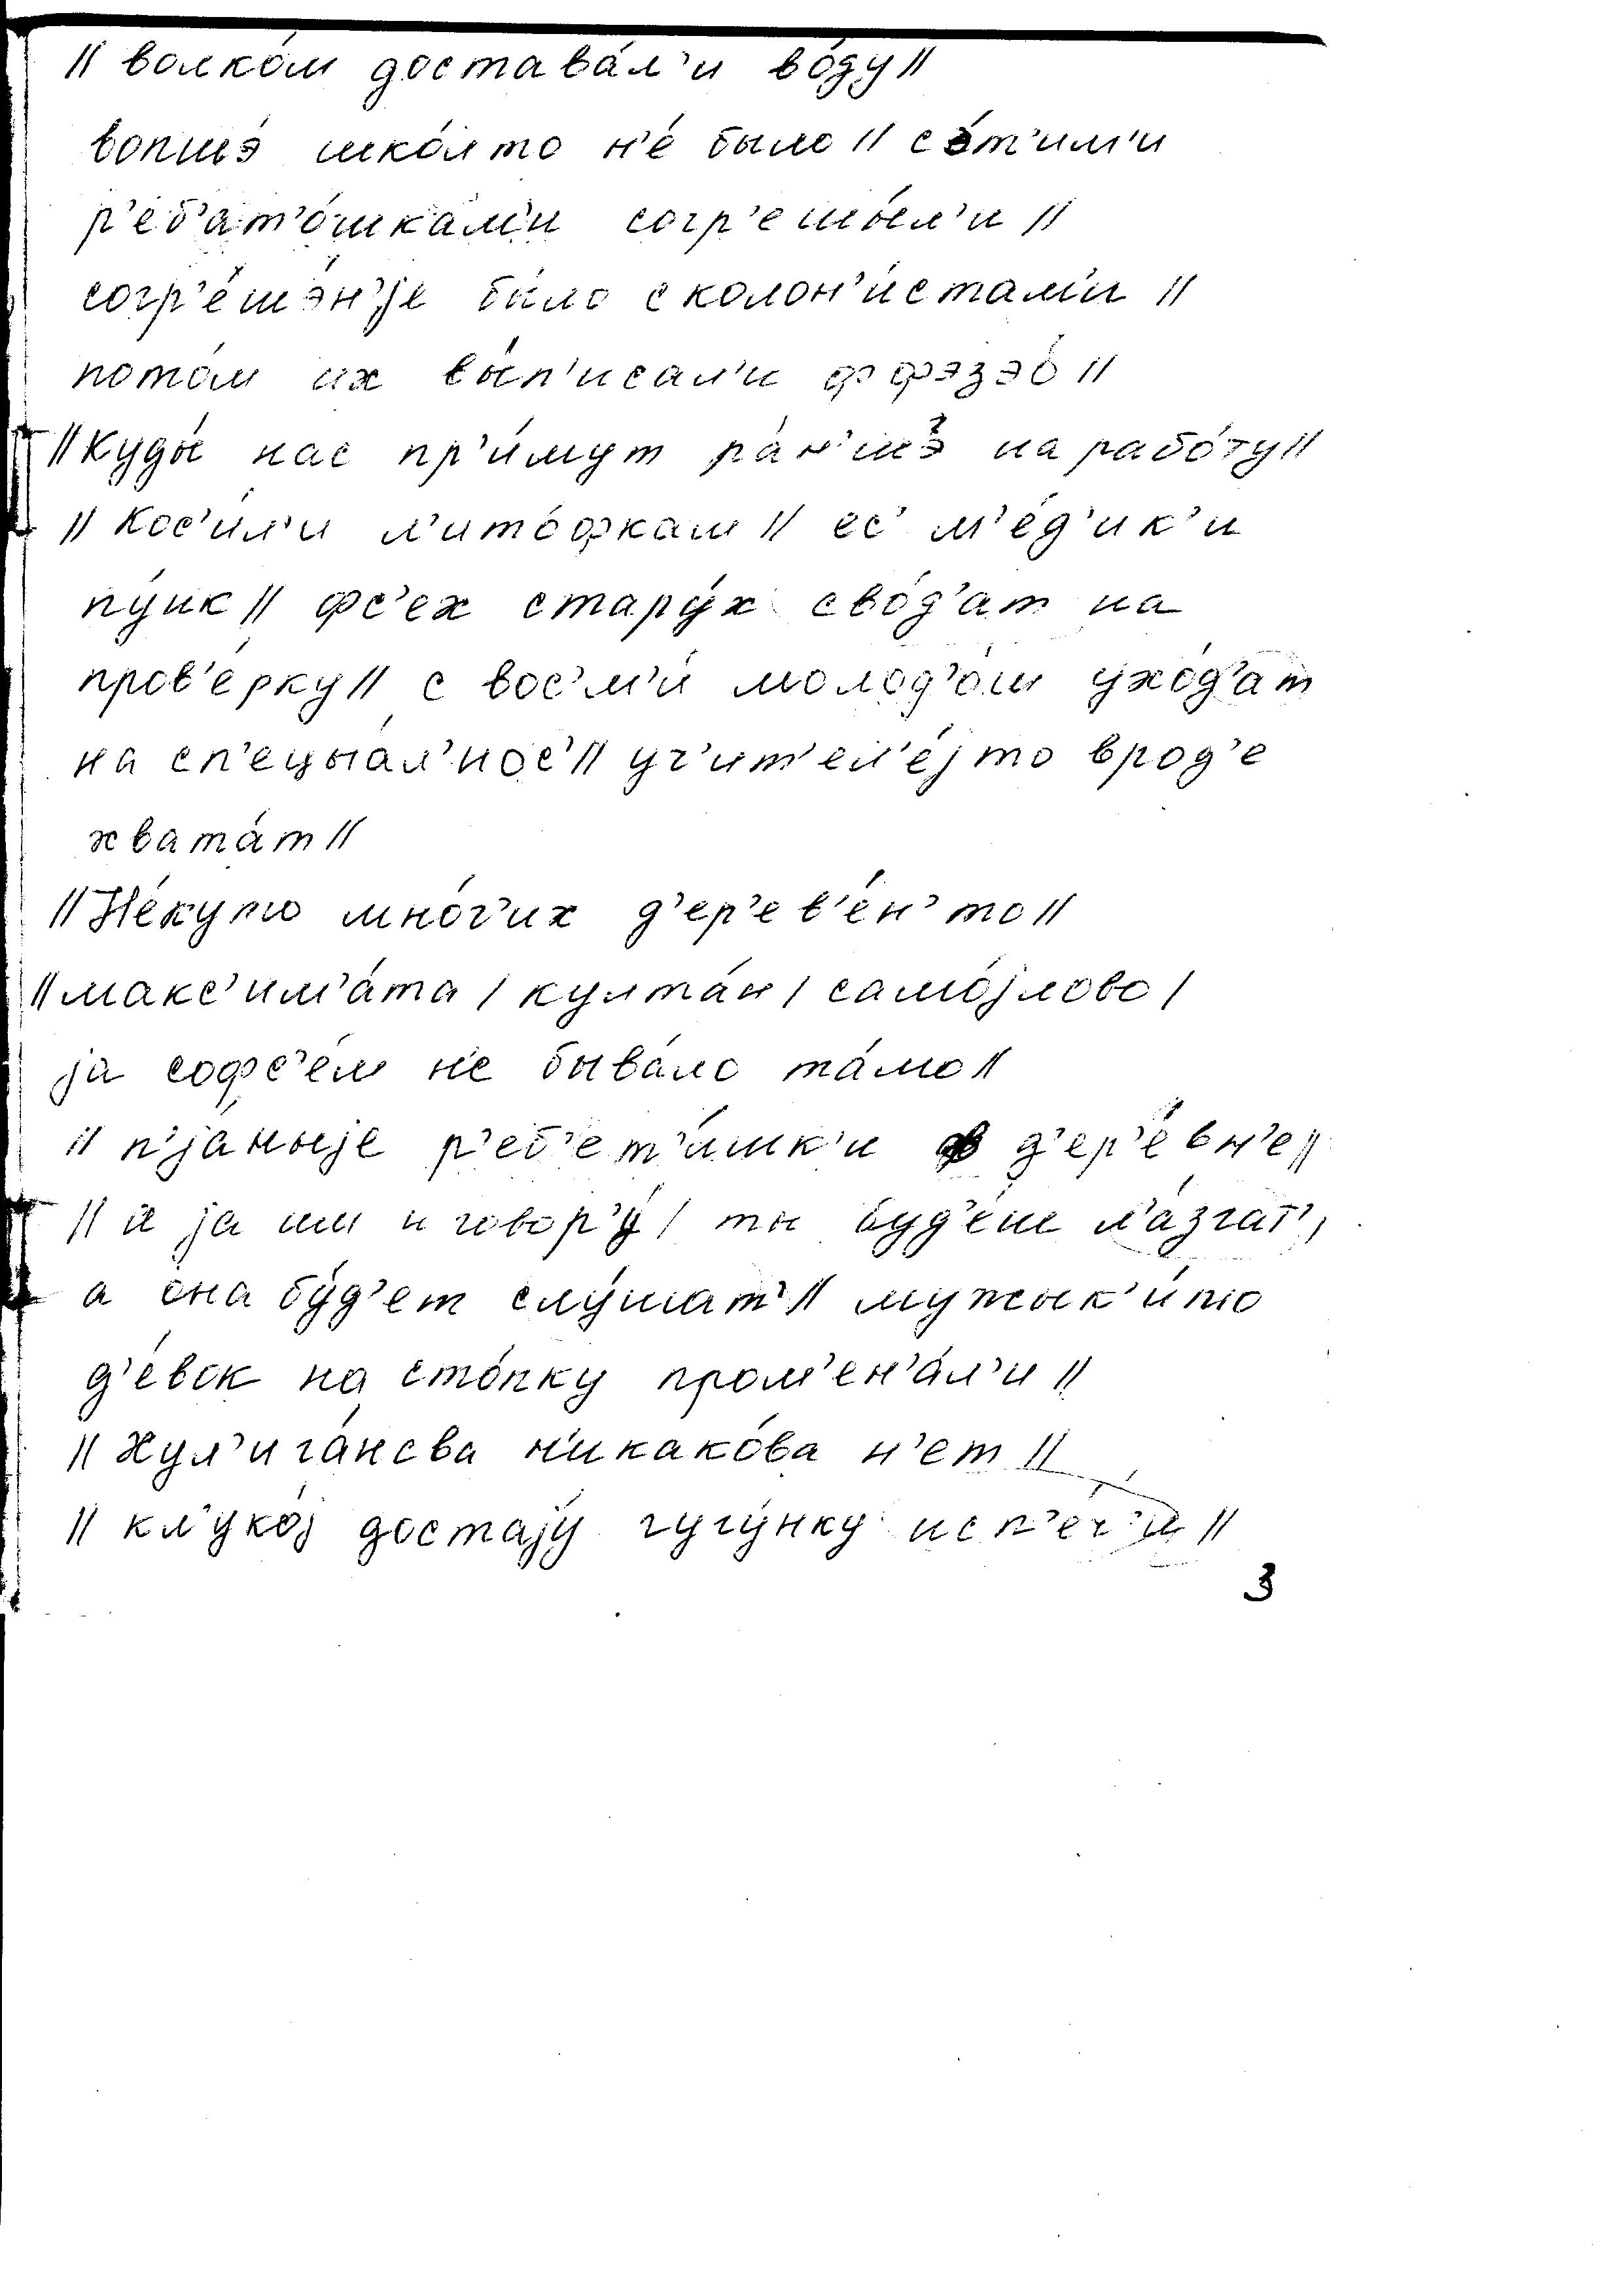 || волко́м достава́л'и во́ду ||
вопшэ́ шко́лто н'е́ было || сэ́т'им'и
р'еб'ат'о́шкам'и согр'ешы́л'и ||
согр'е́шэ́н'jе бы́ло с колон'и́стам'и ||
пото́м их вы́п'исал'и ффэзэо́ ||
|| Куды́ нас пр'и́мут ра́н'шэ на рабо́ту ||
|| Кос'и́л'и л'ито́фкам || ес' м'е́д'ик'и
пу́нк || фс'ех стару́х сво́д'ат на
пров'е́рку || с вос'м'и́ молод'о́ш ухо́д'ат
на сп'ецыа́л'нос' || уч'ит'ел'е́jто врод'е
хвата́т ||
|| Не́куто мно́г'их д'ер'ев'е́н'то ||
|| макс'им'а́та / култа́н / само́jлово /
jа софс'е́м н'е быва́ло та́мо ||
|| п'jа́ныjе р'еб'ет'и́шк'и в д'ер'е́вн'е ||
|| и jа им и говор'у́ / ты буд'еш л'а́згат',
а она бу́д'ет слу́шат' || мужык'и́то
д'е́вок на сто́пку пром'ен'а́л'и ||
|| Хул'ига́нсва н'икако́ва н'ет ||
|| кл'уко́j достаjу́ гугу́нку исп'е́ч'и ||
3